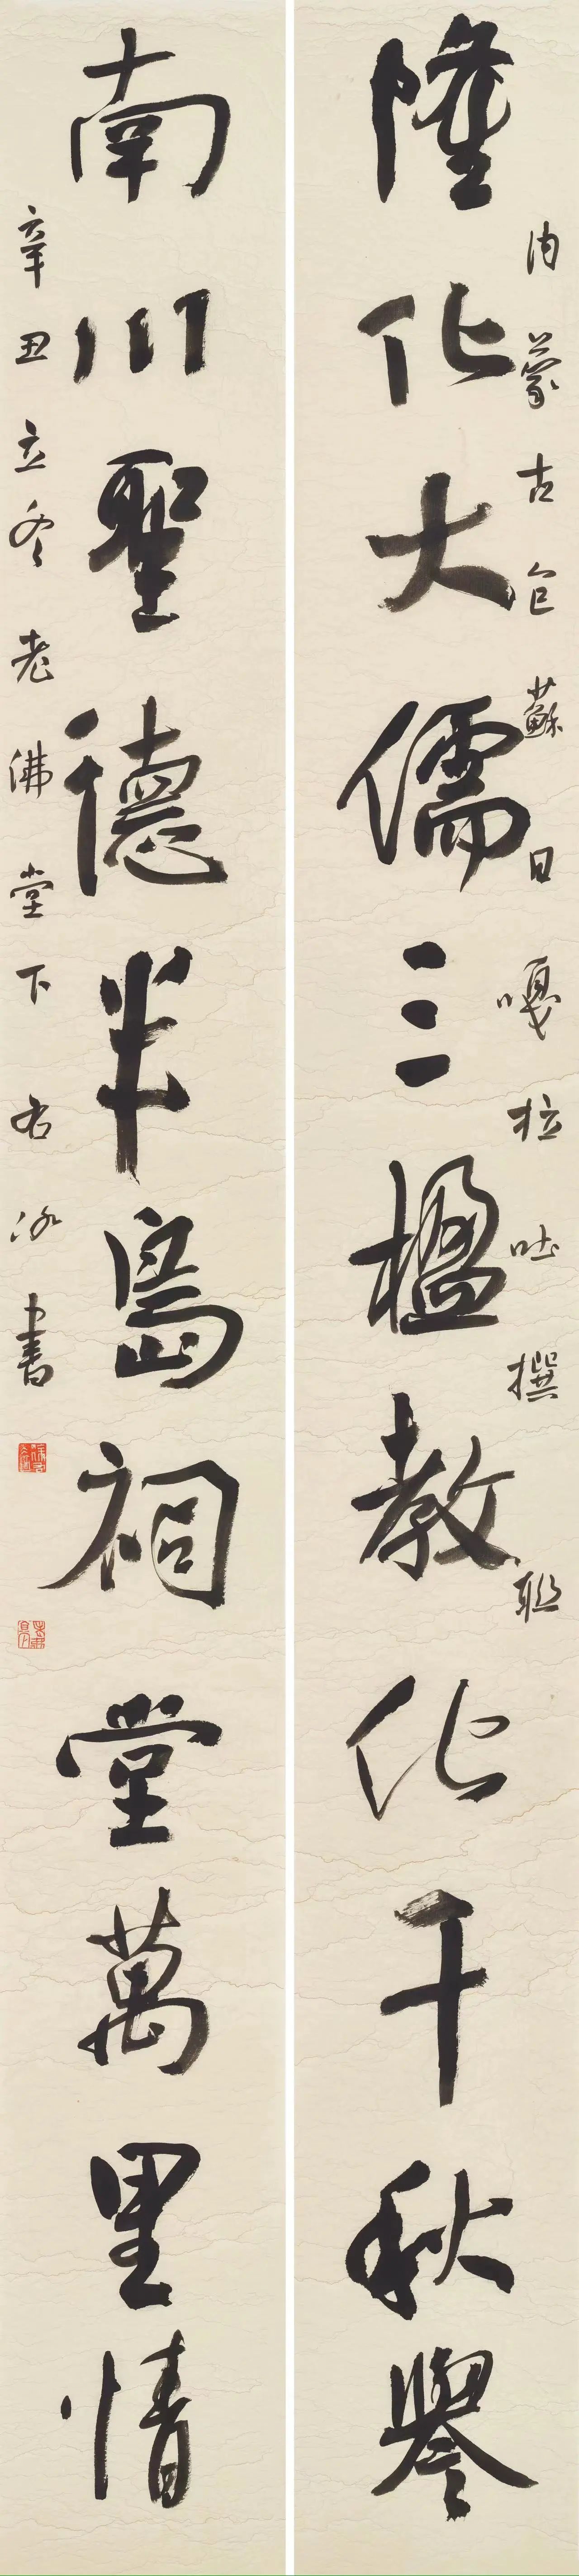 内蒙古包蘇日嘎拉吐撰聯
隆化大儒三楹教化千秋譽
南川聖德半島祠堂萬里情
辛丑立冬老佛堂下右冰書